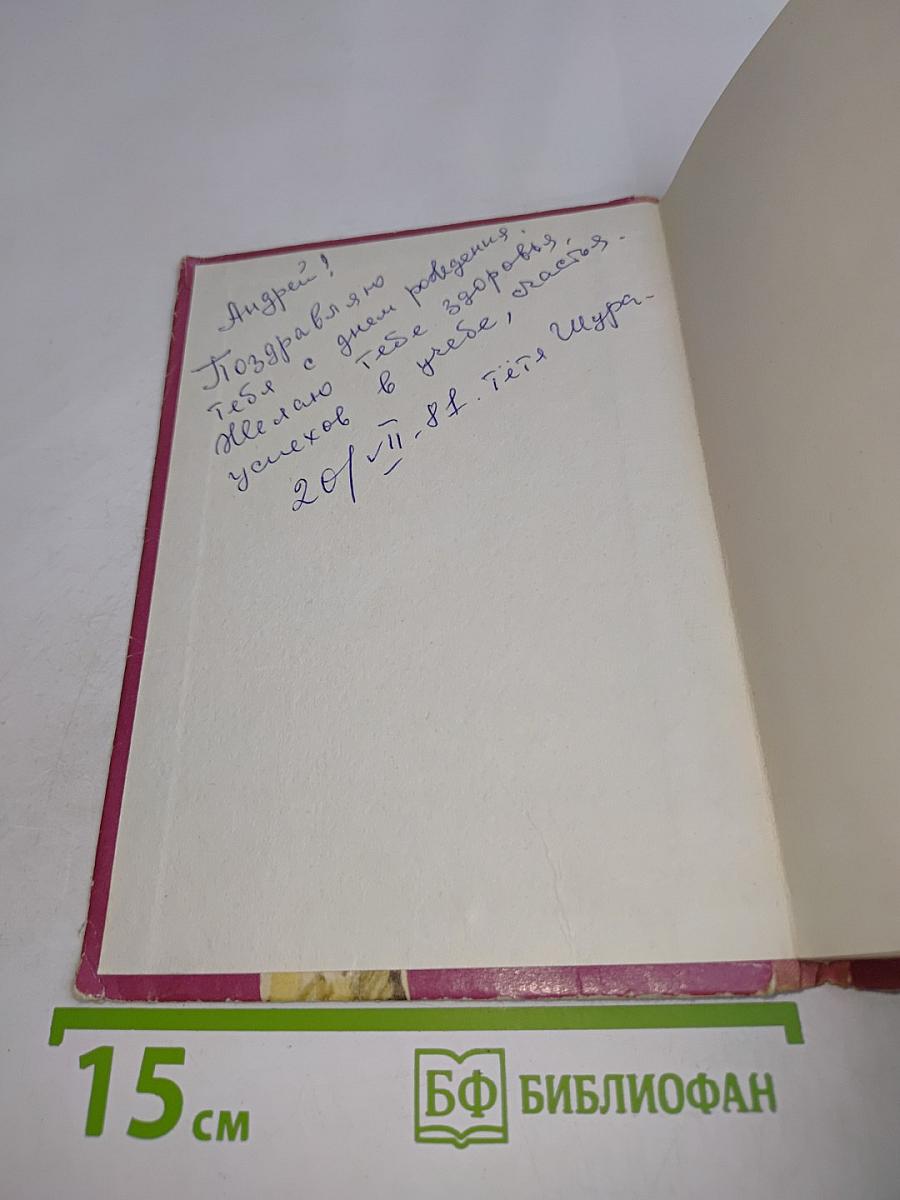 Андрей!
Поздравляю
тебя с днем рождения.
Желаю тебе здоровья,
успехов в учебе, счастья.
20/VII-81. тётя Шура-
15 см
БФ БИБЛИОФАН